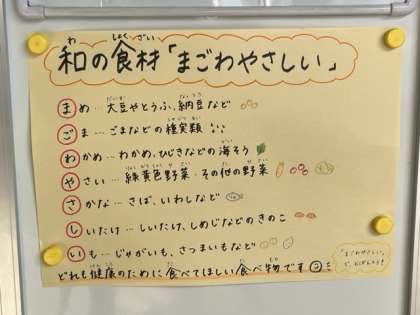 和の食材「まごわやさしい」
まめ…大豆やとうふ、納豆など
ごま…ごまなどの種実類
わかめ…わかめ、ひじきなどの海そう
やさい…緑黄色野菜・その他の野菜
さかな…さば、いわしなど
しいたけ…しいたけ、しめじなどのきのこ
いも…じゃがいも、さつまいもなど
どれも健康のために食べてほしい食べ物です
「まごわやさしい」